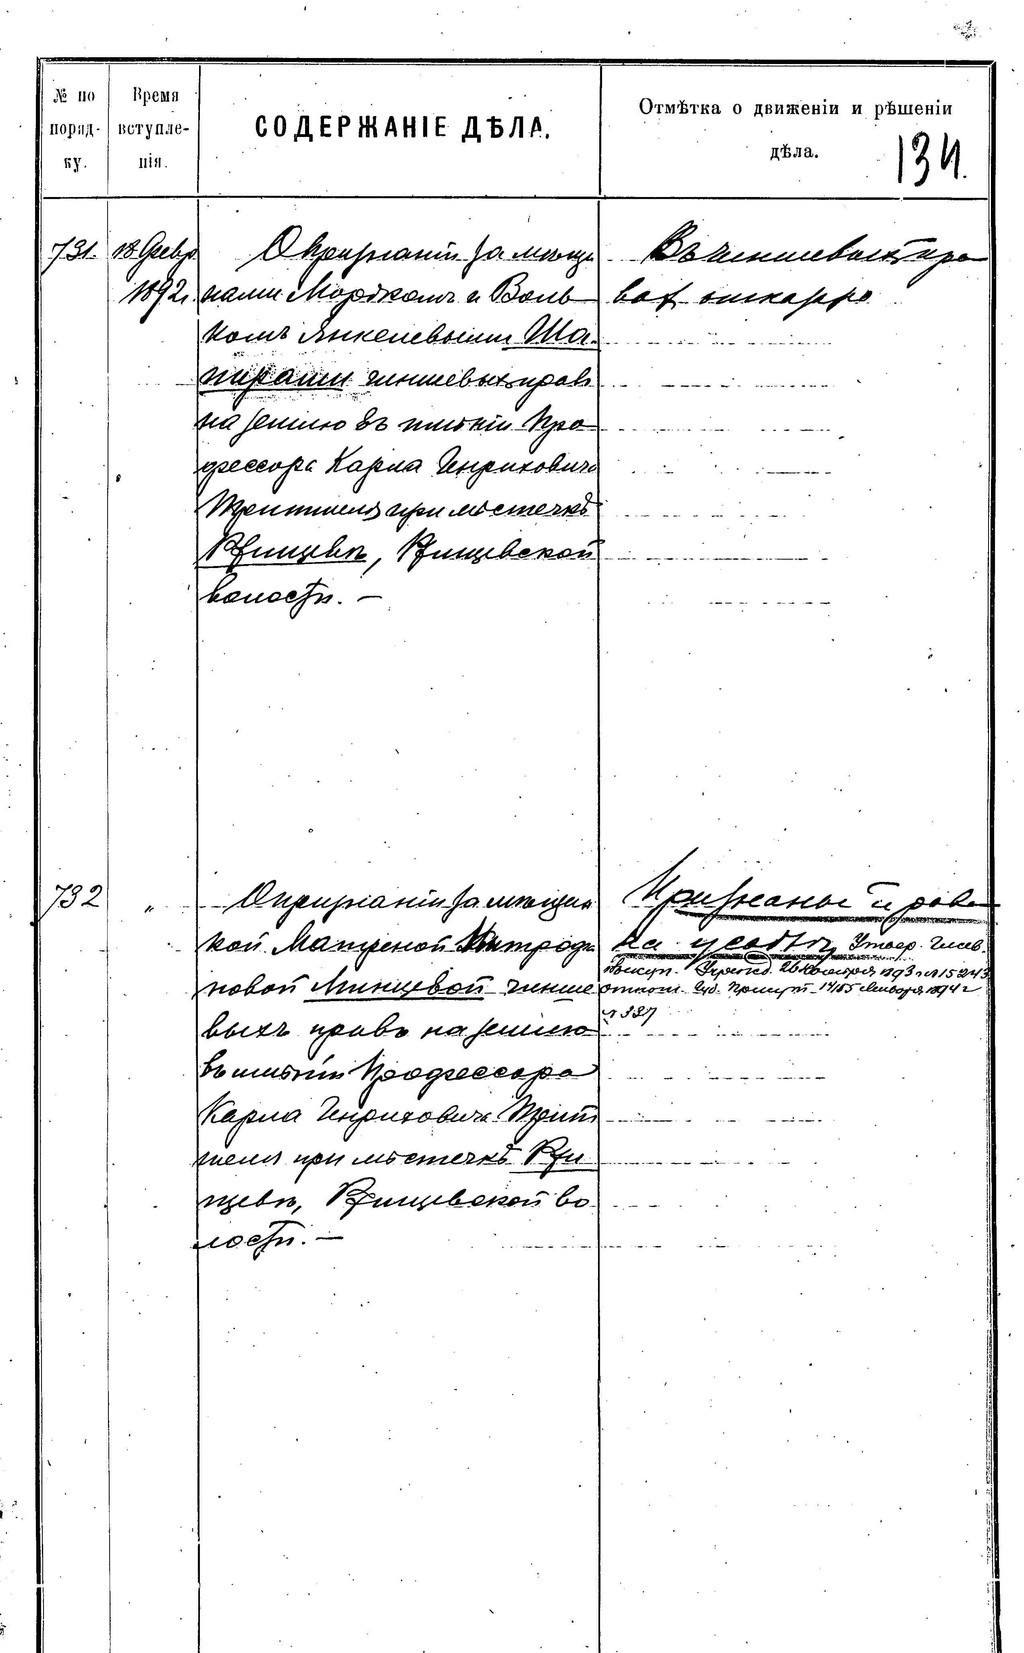 № по порядку.
Время вступленія.
СОДЕРЖАНІЕ ДѢЛА.
Отмѣтка о движеніи и рѣшеніи дѣла.
134.
731.
18 Февр.
1892 г.
О признаніи за мѣща-
нами Мордкомъ и Воль-
комъ Янкелевыми Ша-
пирами чиншевыхъ правъ
на землю въ имѣніи Про-
фессора Карла Генриховича
при мѣстечкѣ
Ржищевѣ, Ржищевской
волости. —
Въ чиншевыхъ пра-
вах отказано
732
"
О признаніи за мѣщан-
кой Матреной Митрофа-
новой чинше-
выхъ правъ на землю
въ имѣніи Профессора
Карла Генриховича
при мѣстечкѣ Ржи-
щевѣ, Ржищевской во-
лости. —
Признаны права
на усадьбу Утвер.
26 Ноября 1893 г. № 15243
Губ. Января 1894 г
№ 337